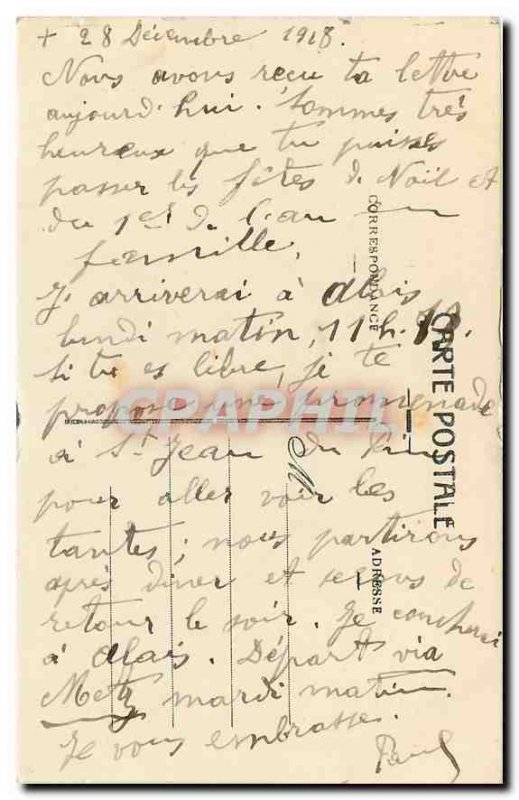 + 28 Décembre 1918.
Nous avons reçu ta lettre
aujourd'hui. Sommes très
heureux que tu puisses
passer les fêtes de Noël et
du 1er de l'an en
famille.
J'arriverai à Alais
lundi matin, 11 h.
si tu es libre, je te
propose une promenade
à St Jean du Pin
pour aller voir les
tantes; nous partirons
après diner et serons de
retour le soir. Je coucherai
à Alais. Départ via
Metz mardi matin.
Je vous embrasse.
Paul
CORRESPONDANCE
CARTE POSTALE
M
ADRESSE
CPAPHIL.COM